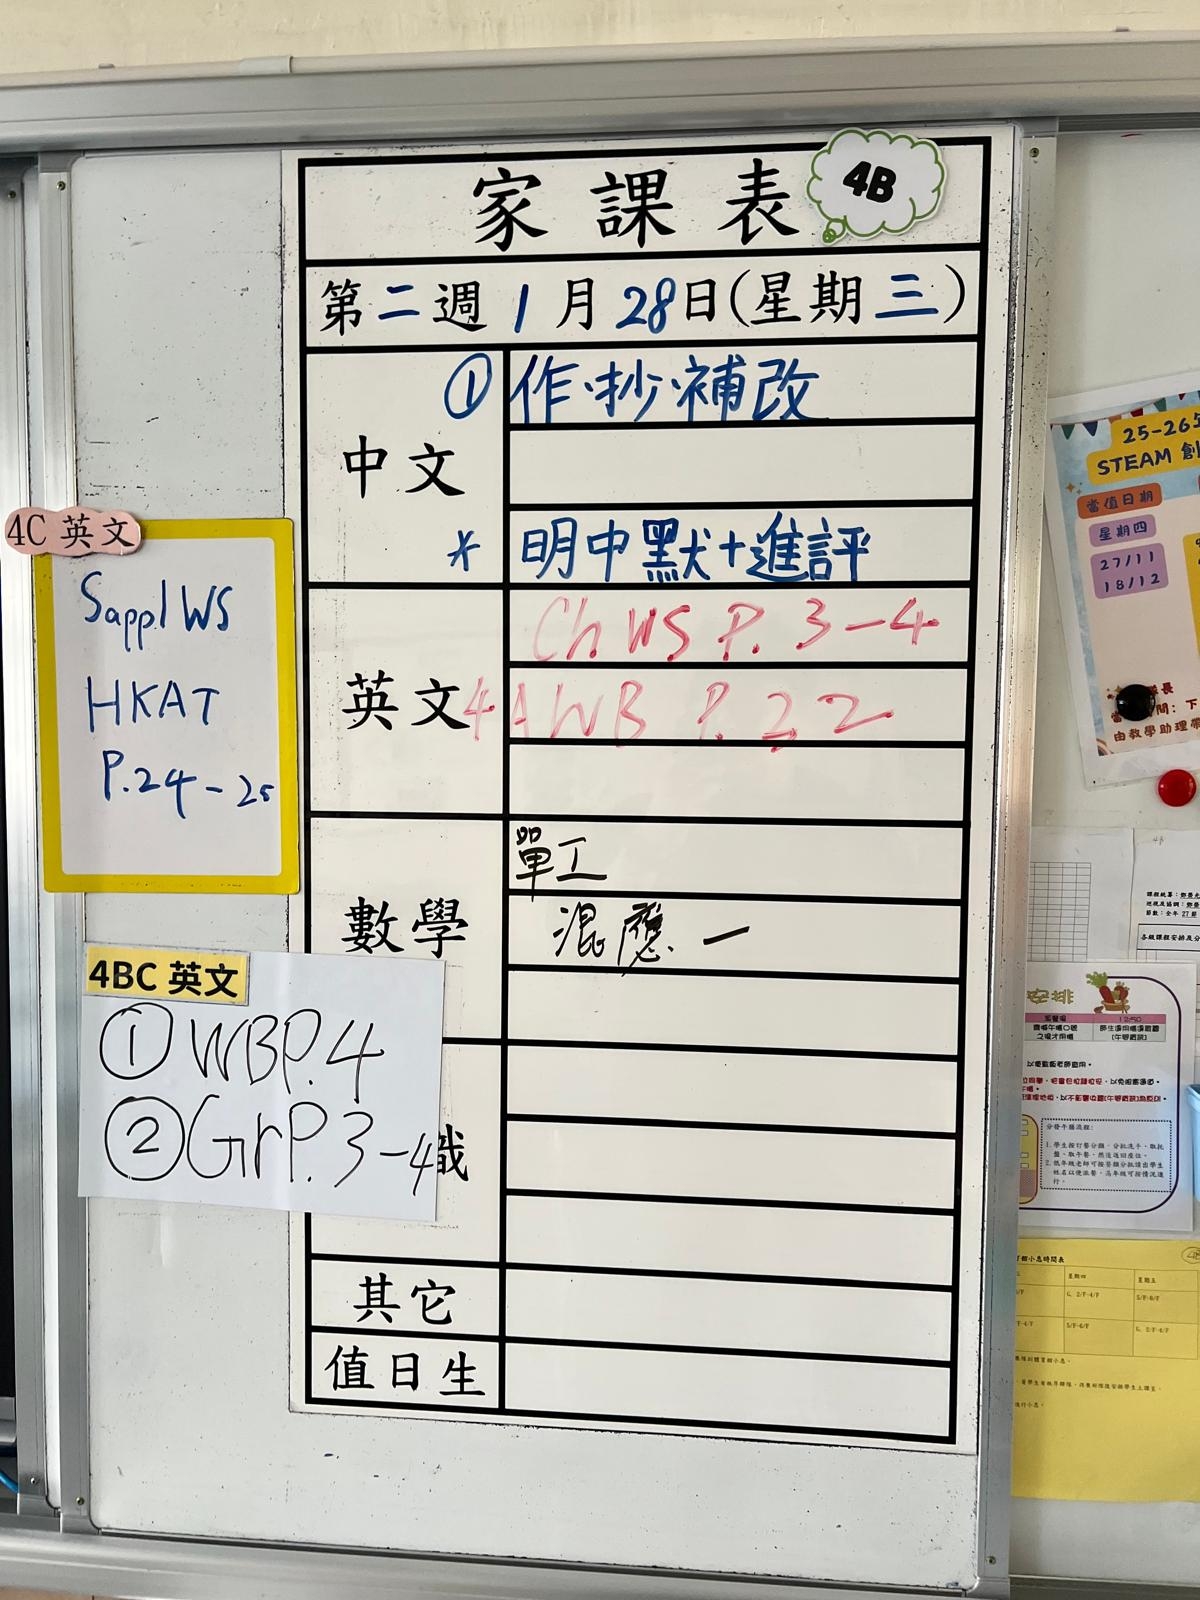 家課表
4B
第二週 1月28日(星期三)
中文
① 作.抄.補改
* 明中默+進評
英文
Ch WS P. 3-4
4A WB P. 22
數學
單工
混應一
識
其它
值日生
4C 英文
Suppl WS
HKAT
P.24-25
4BC 英文
① WB P.4
② Gr P.3-4
25-26
STEAM 創
當值日期
星期四
27/11
18/12
由教學助理帶
安排
12:50
分發午膳流程:
星期四
星期五